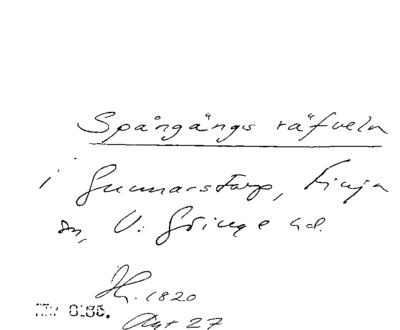 Spångångs räfveln
i Gunnarstorp, Finja
sn, V. Göinge hd.
1820
27